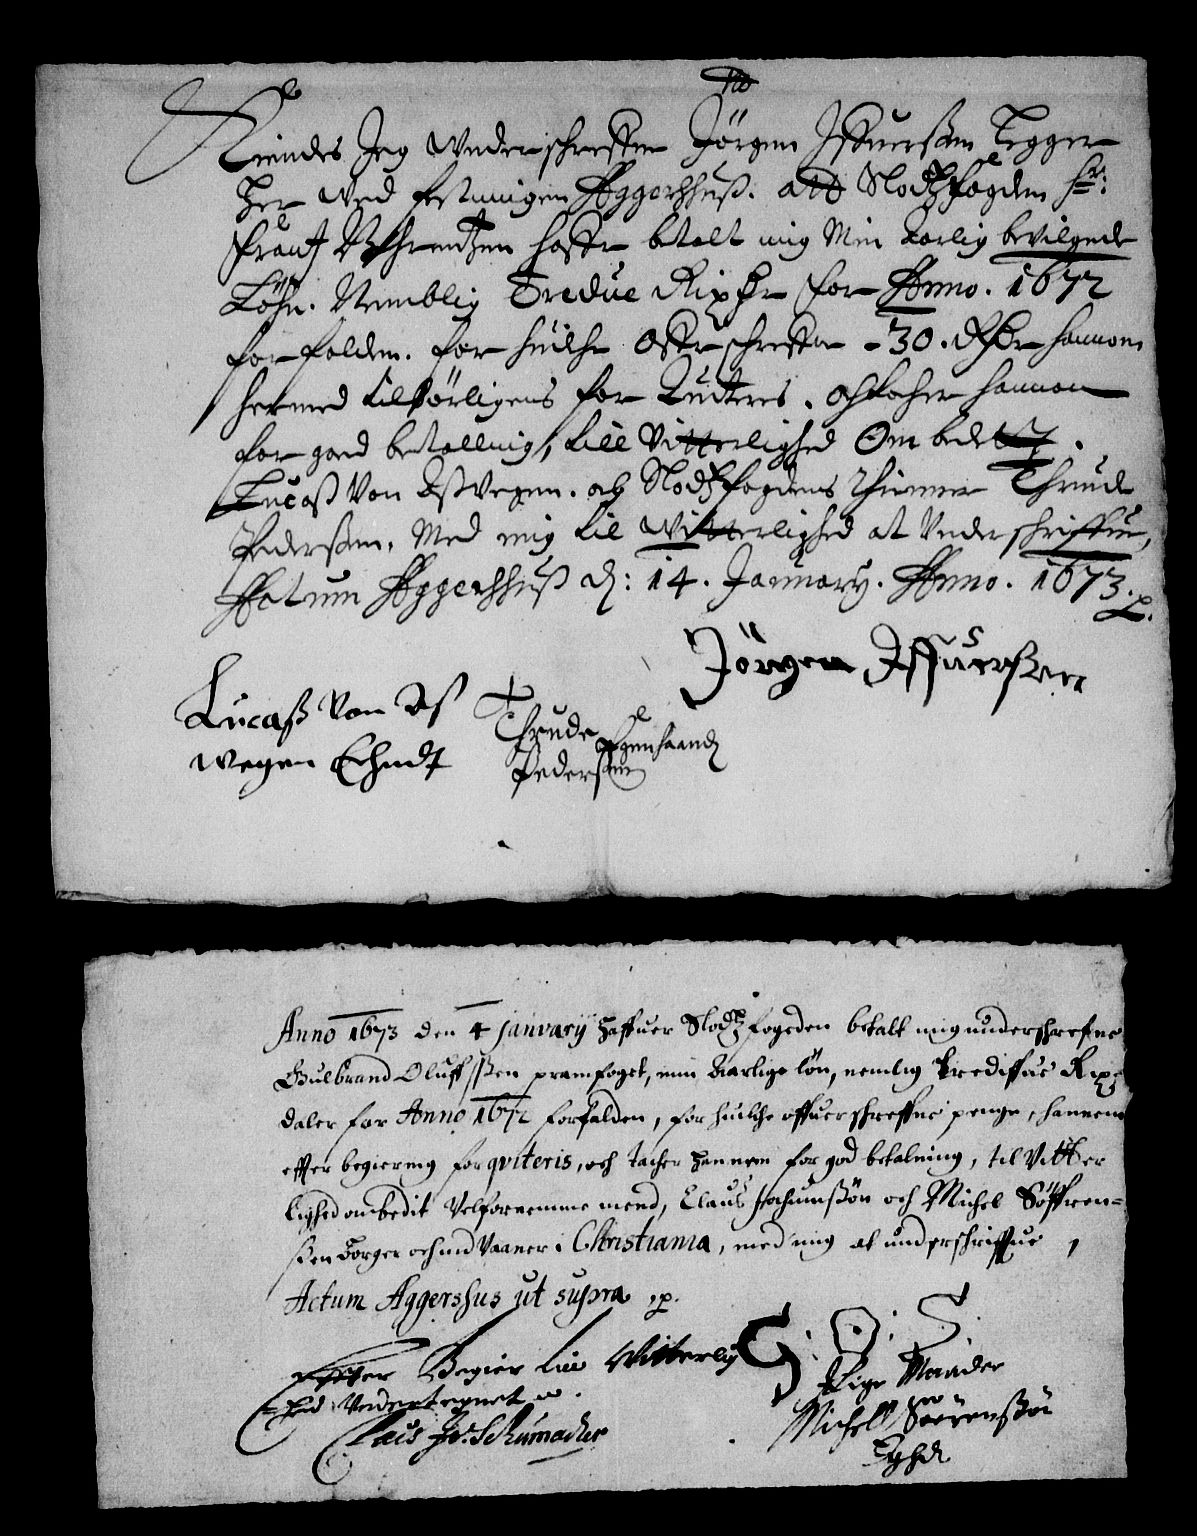 Kiendes Jeg Underschrefne Jörgen Issuersøn Legger
her ved festningen Aggershuss. att Slodtzfogden Hr:
Frantz Behrentzen hafr betalt mig Min Aarlig bevilgede
Löhn. Nemblig Tredue Rixdr for Anno. 1672
forfalden. for huilche Offuerschrefne - 30. Rdr hannom
hermed tilbørligens for Quiteres. och tacher hannom
for goed betalling, till Vitterlighed Ombedet
Lucass Von Asswegen. och Slodtzfogdens thienner Thrude
Pedersøn. Med mig til Witterlighed at Underschriffue,
Datum Aggershuss d: 14. January. Anno. 1673. p.
Jörgen Issuerssen
Lucass Von As
wegen Echndt
Thrude
Pedersøn
Egenhaand
Anno 1673 den 4 Janvarij haffuer Slodtzfogeden betalt mig underschrefne
Gulbrand Oluffssen pramfoget, min Aarlige lön, nemlig trediffue Rixs
daler for Anno 1672 forfalden, for huilche offuerschreffne penge, hannem
effter begiering forqviteris, och tacker hannem for god betalning, til Vitter
lighed ombedit Velfornemme mend, Claus Jochumssön och Michel Söffren-
ssen Borger och indVaaner i Christiania, med mig at underschriffue,
Actum Aggershus ut supra .p.
Effter Begier till Witterlig
hed Undertegnet
Claus Jo: Schumacher
G. O. S.
Lige Maader
Michell Söörenssön
Eghd